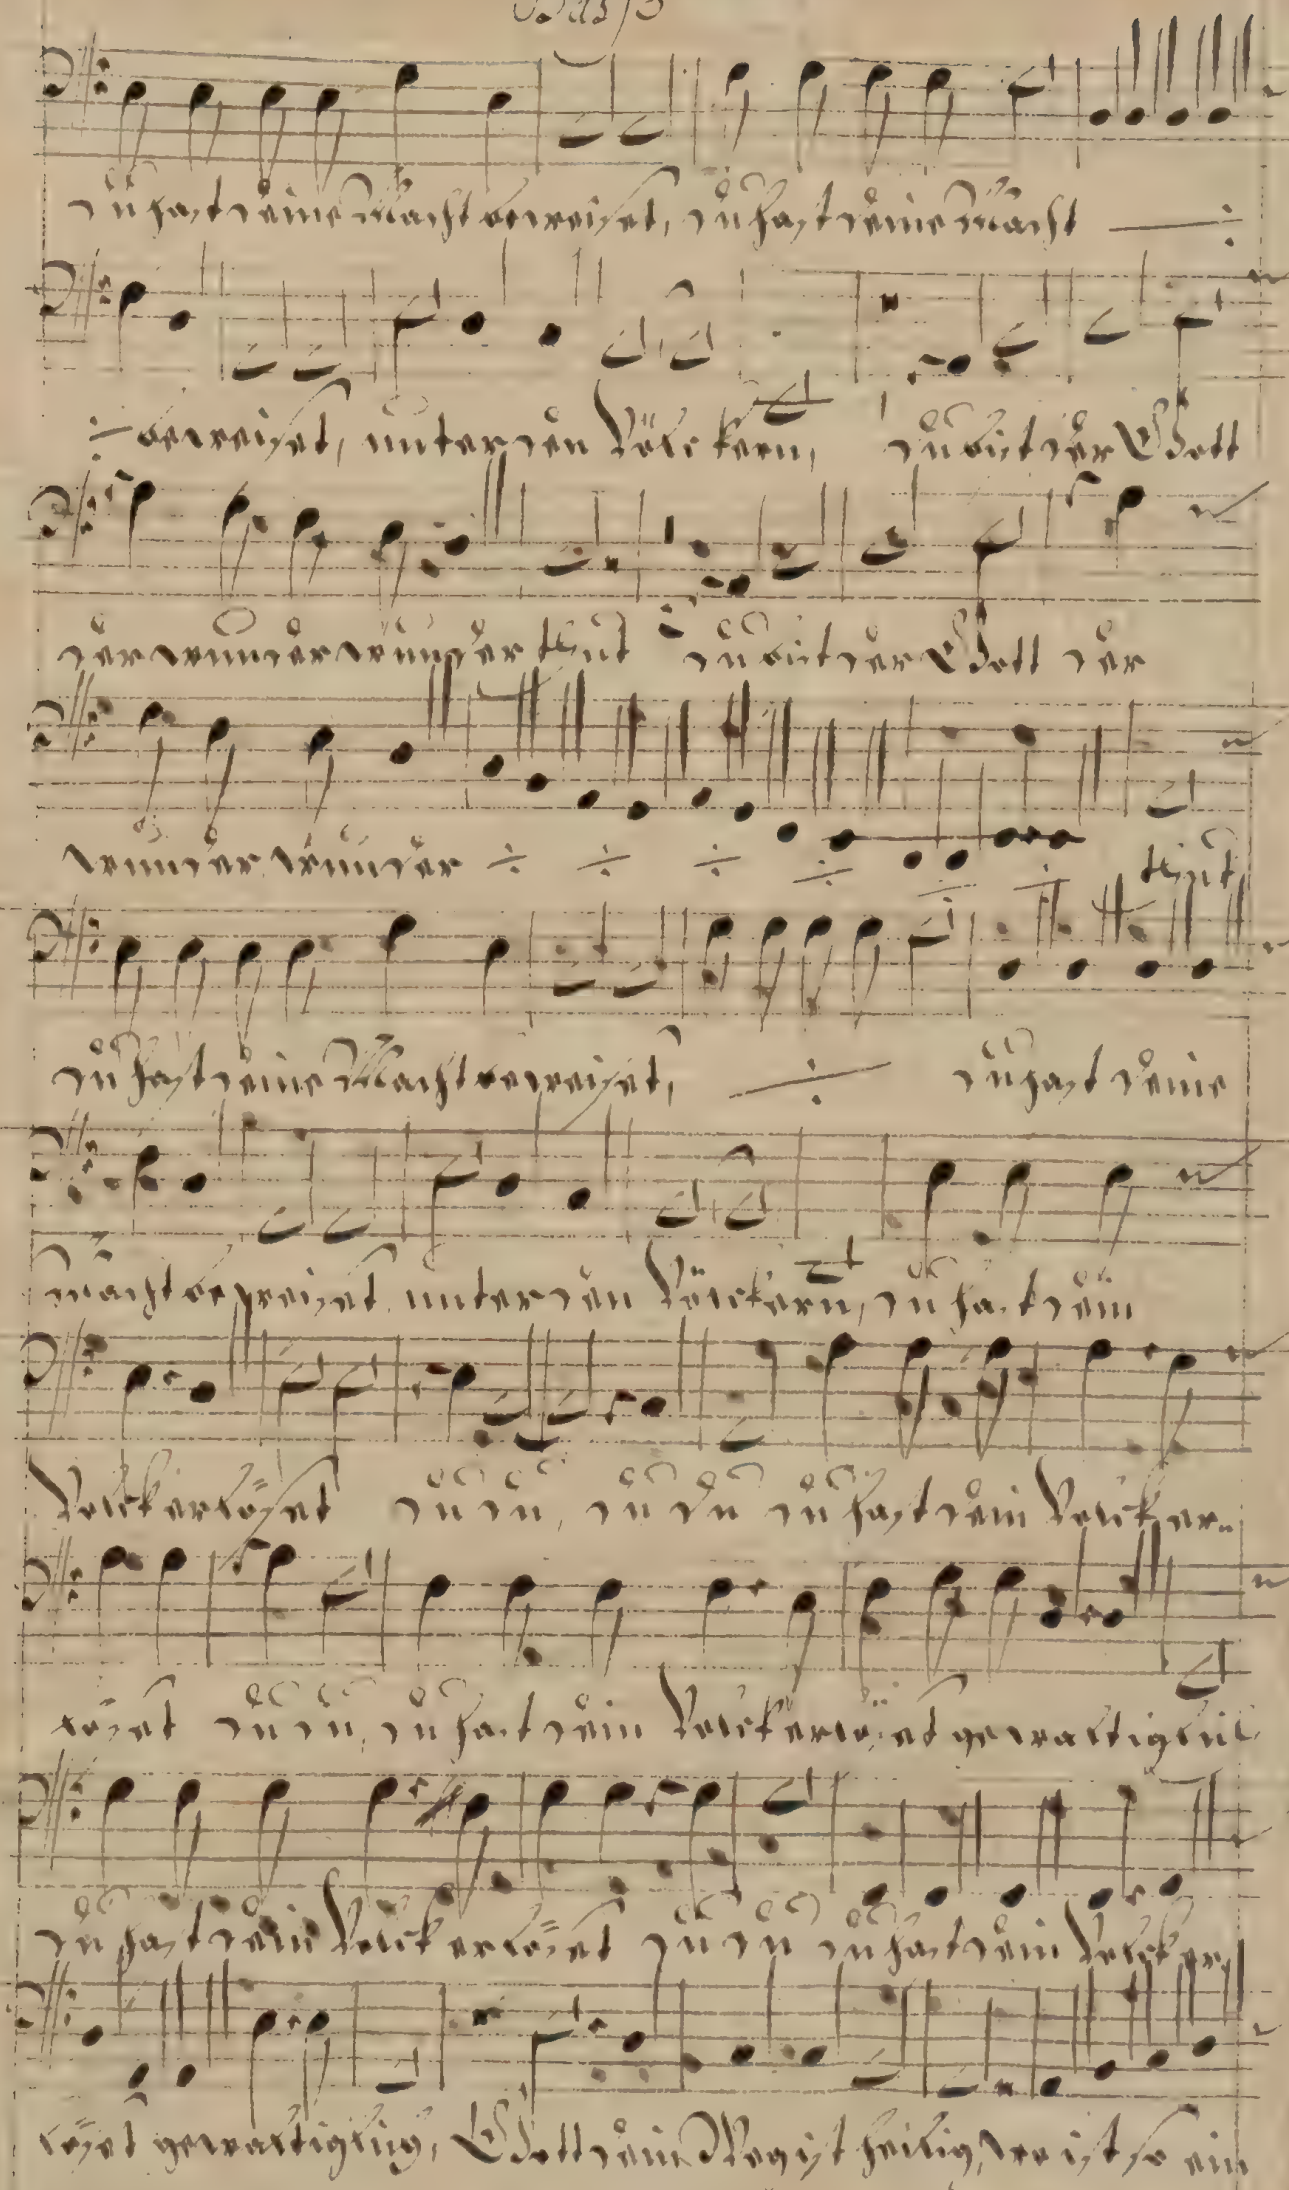 Basso
Du hast deine Macht beweiset, du hast deine Macht ÷
÷ beweiset, unter den Völckern, du bist der Gott
der wunder wunder thut du bist der Gott der
wunder wunder ÷ ÷ ÷ ÷ ÷ ÷ thut
du hast deine Macht beweiset, ÷ du hast deine
macht beweiset unter den Völckern, du hast dein
Volck erlöset du du, du du du hast dein Volck er-
löset du du, du hast dein Volck erlöset gewaltiglich
du hast dein Volck erlöset du du du hast dein Volck er
löset gewaltiglich, Gott dein Weg ist heilig, wo ist so ein